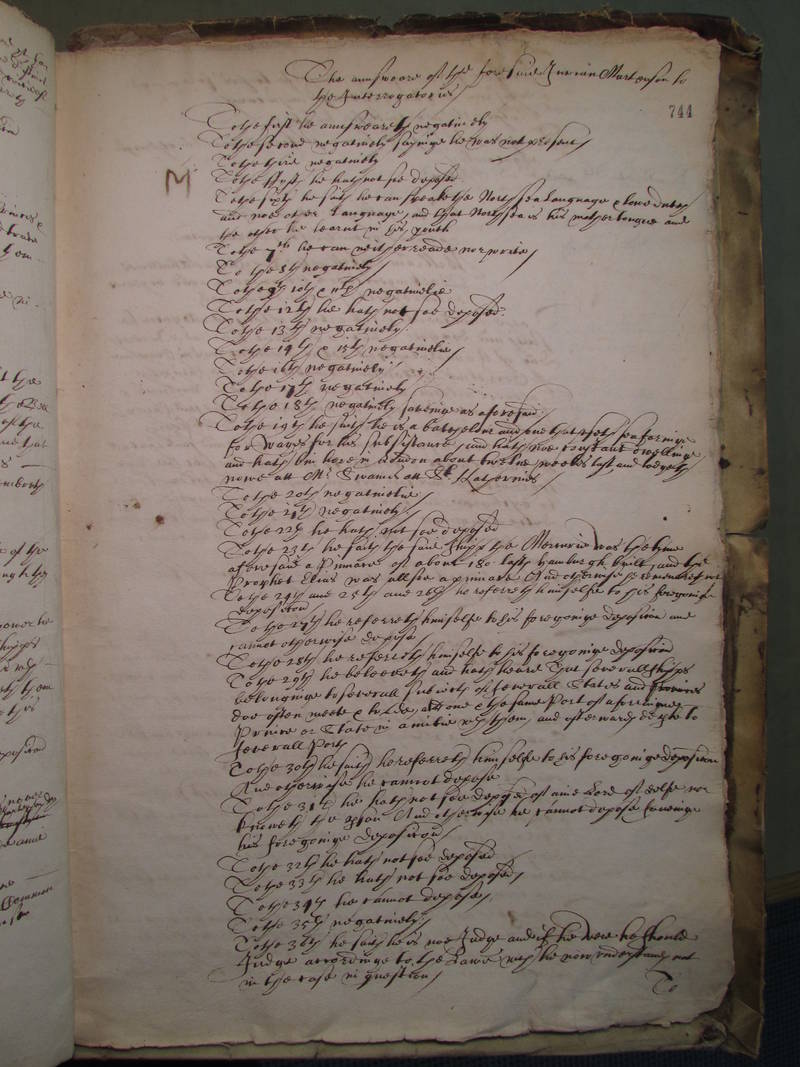 The answeare of the fore said Jurian Martenson to
the Interrogatories
744
To the first he answeareth negatively
To the second negatively sayinge he was not present
To the third negatively
M
To the fifth he hath not soe deposed
To the sixth he saith he can speake the North sea Language & lowe dutch
and noe other Language, and that North sea is his mother tongue and
the other he learnt in his youth
To the 7th he can neither reade nor write
To the 8th negatively
To the 9th 10th & 11th negativelie
To the 12th he hath not soe deposed.
To the 13th negatively.
To the 14th & 15th negativelie
To the 16th negatively
To the 17th negatively
To the 18th negatively saveinge as aforesaid
To the 19th he saith he is a batchelour and one that useth seafaringe
for wages for his subsistance, and hath noe constant dwellinge
and hath bin here in London about twelve weekes last, and lodgeth
nowe att Mr Swanns att St Katherines
To the 20th negativelie
To the 21th negatively
To the 22th he hath not soe deposed
To the 23th he saith the said shipp the Mercurie was the tyme
aforesaid a Pinnace of about 180 lasts hamburgh built, and the
Prophet Elias was allsoe a pinnace And otherwise he
To the 24th and 25th and 26th he referreth himselfe to his foregoinge
deposition
To the 27th he referreth himselfe to his foregoinge deposition and
cannot otherwise depose
To the 28th he referreth himselfe to his foregoinge deposition
To the 29th he beleeveth and hath heard that severall shipps
belonginge to severall subiects of severall States and Princes
doe often meete & trade att one & the same Port of a forreigne
Prince or State in amitie with them, and afterwards departe to
severall Ports
To the 30th he saith he referreth himselfe to his foregoinge deposition
And otherwise he cannot depose
To the 31th he hath not soe deposed of anie Lord of selfe nor
knoweth the And otherwise he cannot depose saveinge
his foregoinge deposition
To the 32th he hath not soe deposed
To the 33th he hath not soe deposed
To the 34th he cannot depose
To the 35th negatively
To the 36th he saith he is noe Judge and if he were he should
Judge accordinge to the Lawe which he now understands not
in the case in question
To